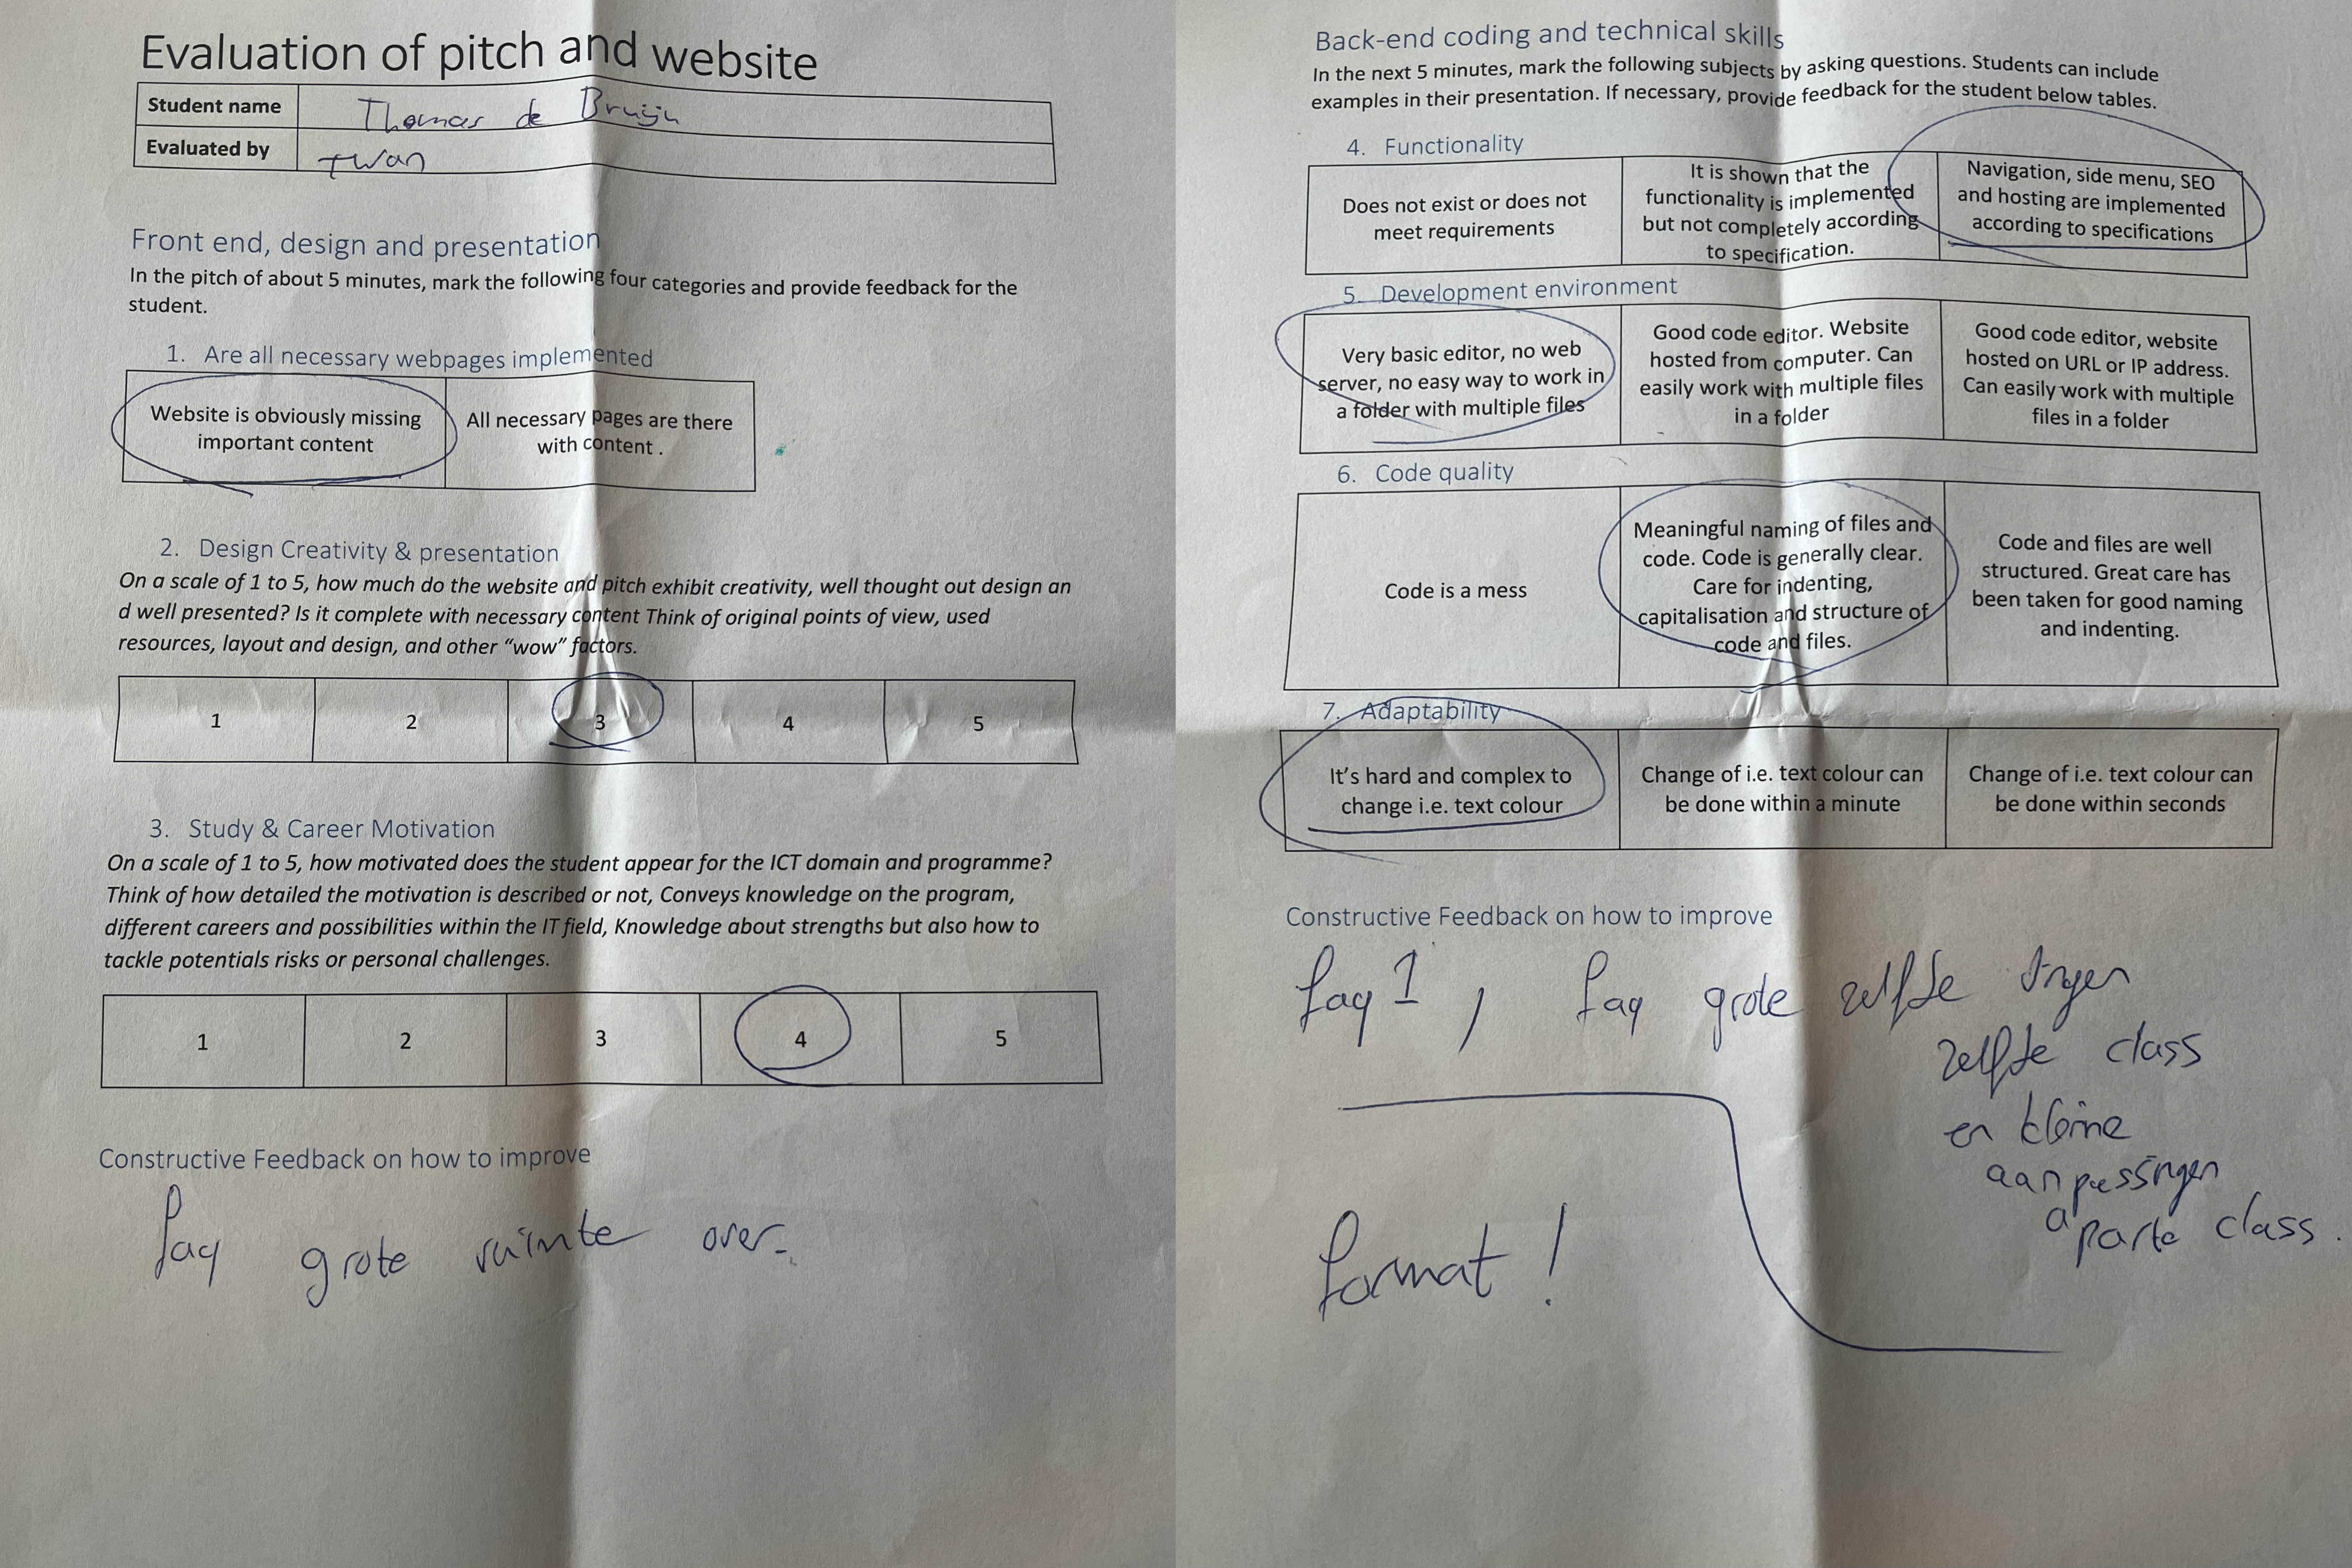 Evaluation of pitch and website
Student name Thomas de Bruijn
Evaluated by Twan
Front end, design and presentation
In the pitch of about 5 minutes, mark the following four categories and provide feedback for the
student.
1. Are all necessary webpages implemented
Website is obviously missing
important content
All necessary pages are there
with content .
2. Design Creativity & presentation
On a scale of 1 to 5, how much do the website and pitch exhibit creativity, well thought out design an
d well presented? Is it complete with necessary content Think of original points of view, used
resources, layout and design, and other “wow” factors.
1 2 3 4 5
3. Study & Career Motivation
On a scale of 1 to 5, how motivated does the student appear for the ICT domain and programme?
Think of how detailed the motivation is described or not, Conveys knowledge on the program,
different careers and possibilities within the IT field, Knowledge about strengths but also how to
tackle potentials risks or personal challenges.
1 2 3 4 5
Constructive Feedback on how to improve
faq grote ruimte over.
Back-end coding and technical skills
In the next 5 minutes, mark the following subjects by asking questions. Students can include
examples in their presentation. If necessary, provide feedback for the student below tables.
4. Functionality
Does not exist or does not
meet requirements
It is shown that the
functionality is implemented
but not completely according
to specification.
Navigation, side menu, SEO
and hosting are implemented
according to specifications
5. Development environment
Very basic editor, no web
server, no easy way to work in
a folder with multiple files
Good code editor. Website
hosted from computer. Can
easily work with multiple files
in a folder
Good code editor, website
hosted on URL or IP address.
Can easily work with multiple
files in a folder
6. Code quality
Code is a mess
Meaningful naming of files and
code. Code is generally clear.
Care for indenting,
capitalisation and structure of
code and files.
Code and files are well
structured. Great care has
been taken for good naming
and indenting.
7. Adaptability
It’s hard and complex to
change i.e. text colour
Change of i.e. text colour can
be done within a minute
Change of i.e. text colour can
be done within seconds
Constructive Feedback on how to improve
faq 1 , faq grote zelfde dingen
zelfde class
en kleine
aanpassingen
aparte class.
format !